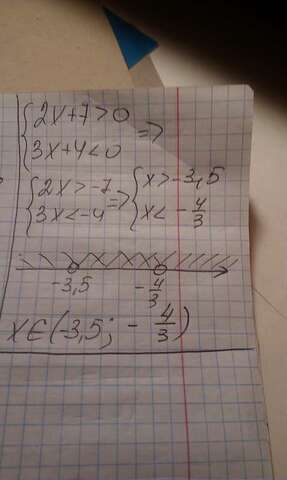 {2x+7>0
{3x+4<0 =>
{2x>-7
{3x<-4 => {x>-3,5
{x<-4/3
-3,5 -4/3
x∈(-3,5; -4/3)